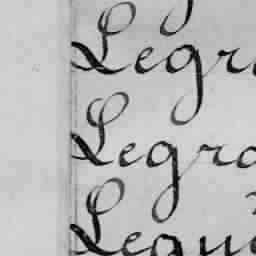 Legra
Legra
Legui